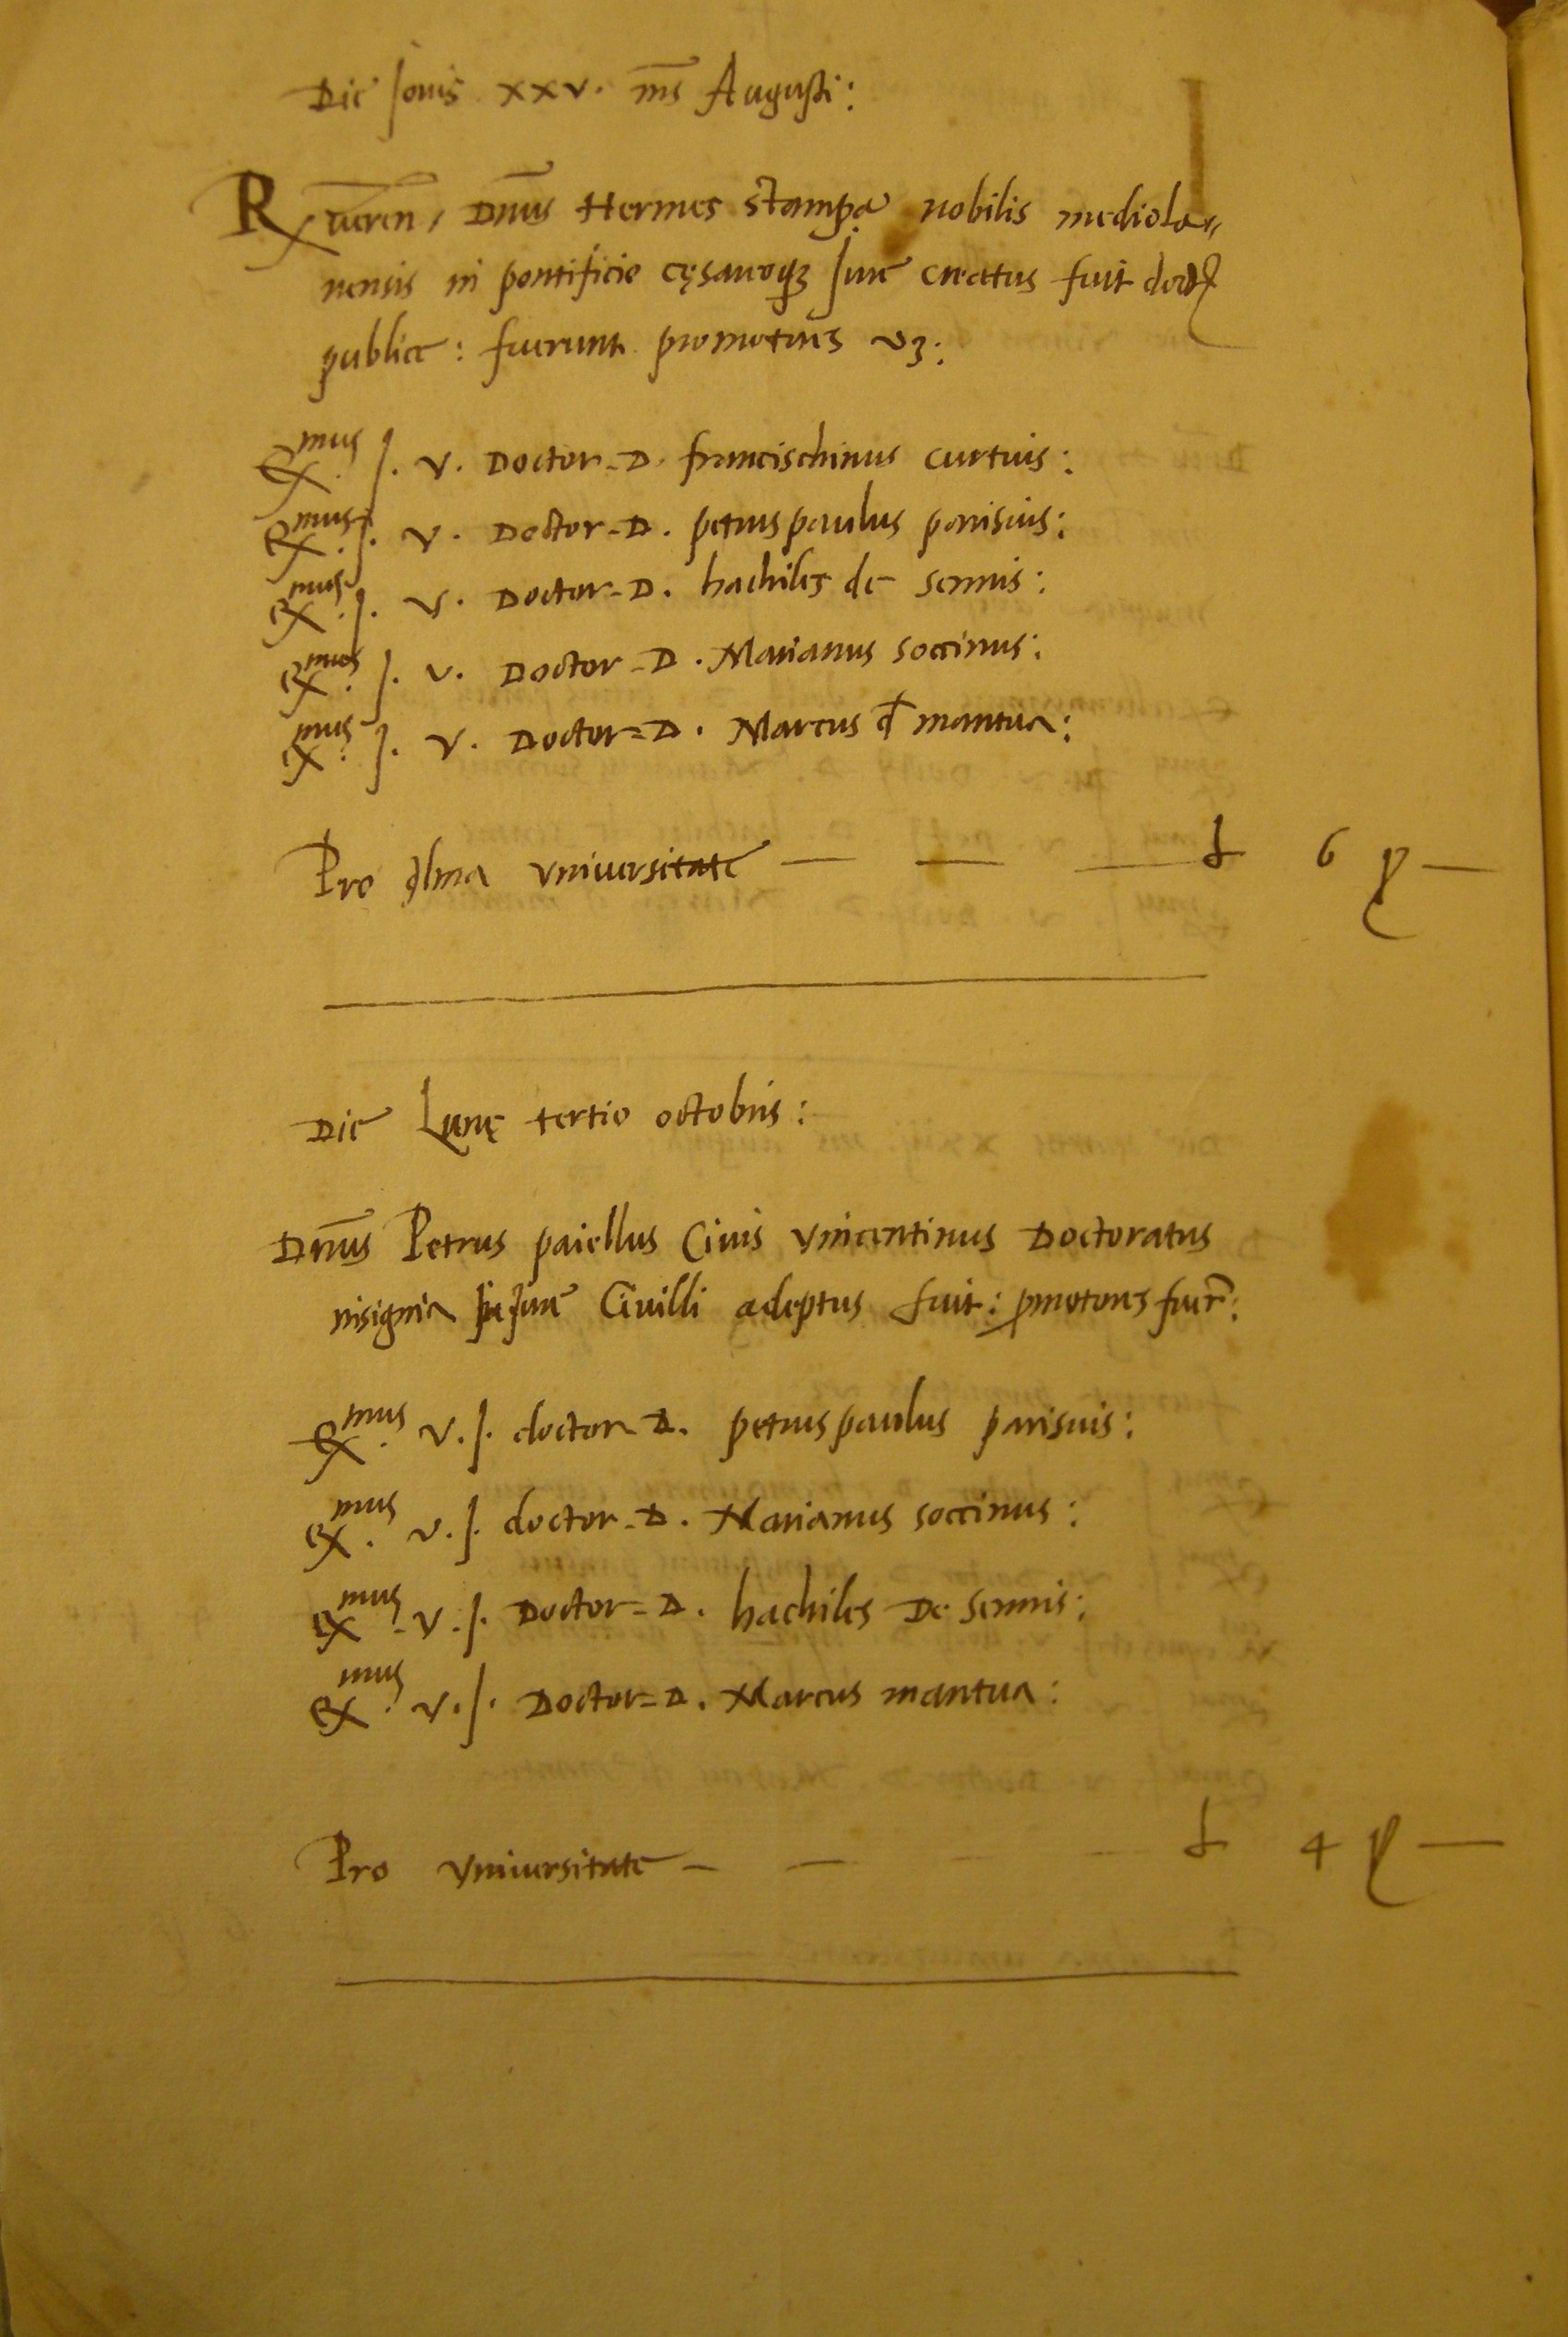 Die Jovis xxv. mēs Augusti:
Rx veren, Dn̄us Hermes stampa nobilis mediola„
nensis in pontificio cęsareoqꝫ Jure creatus fuit doctꝛ
publice: fuerunt promotores vꝫ:
Exmus J. V. Doctor D. francischinus curtius:
Exmus J. V. Doctor D. petruspaulus parisius:
Exmus J. V. Doctor D. hachiles de sennis:
Exmus J. V. Doctor D. Marianus soccinus:
Exmus J. V. Doctor D. Marcus đ mantua:
Pro alma universitate — — — £ 6 ꝑ —
Die Lunę tertio octobris:
Dn̄us Petrus paiellus Civis vincentinus Doctoratus
insignia in Jure Civilli adeptus fuit: ꝓmotores fuer̄:
Exmus V. J. doctor D. petruspaulus parisius:
Exmus V. J. doctor D. Marianus soccinus:
Exmus V. J. Doctor D. hachiles De sennis:
Exmus V. J. Doctor D. Marcus mantua:
Pro Universitate — — — £ 4 ꝑ —